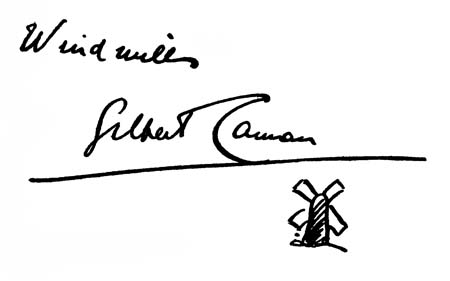 Windmills
Gilbert Cannan